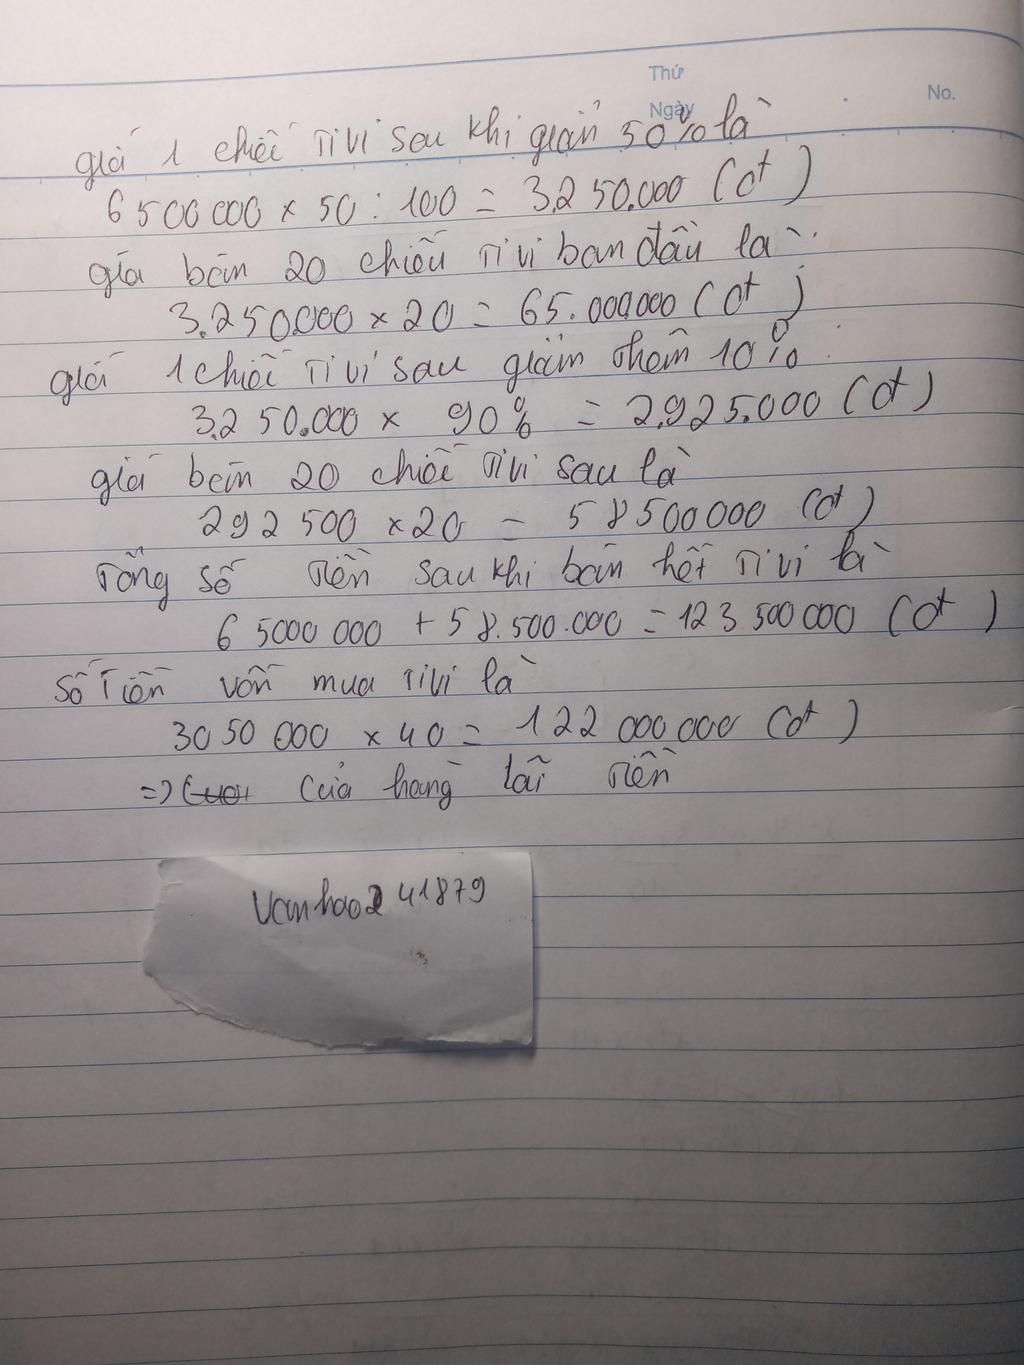 Thứ
Ngày
No.
giá 1 chiếc Ti Vi sau khi giản 50% là
6500000 x 50 : 100 = 3.250.000 (đ)
gía bán 20 chiếc Ti vi ban đầu là
3.250.000 x 20 = 65.000.000 (đ)
giá 1 chiếc Ti vi sau giảm thêm 10%
3.250.000 x 90% = 2.925.000 (đ)
giá bán 20 chiếc Tivi sau là
292500 x 20 = 58500000 (đ)
Tổng số Tiền sau khi bán hết Ti vi là
65000000 + 58.500.000 = 123500000 (đ)
Số Tiền vốn mua Tivi là
3050000 x 40 = 122000000 (đ)
=> Cửa hàng lãi Tiền
Vanhao241879